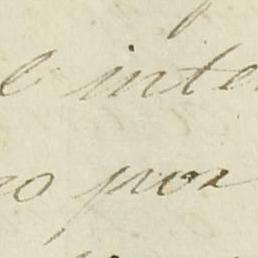 e inte
o por